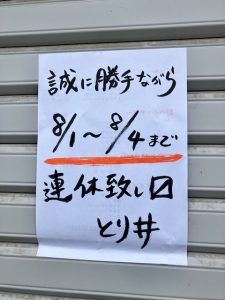 誠に勝手ながら
8/1～8/4まで
連休致し〼
とり井